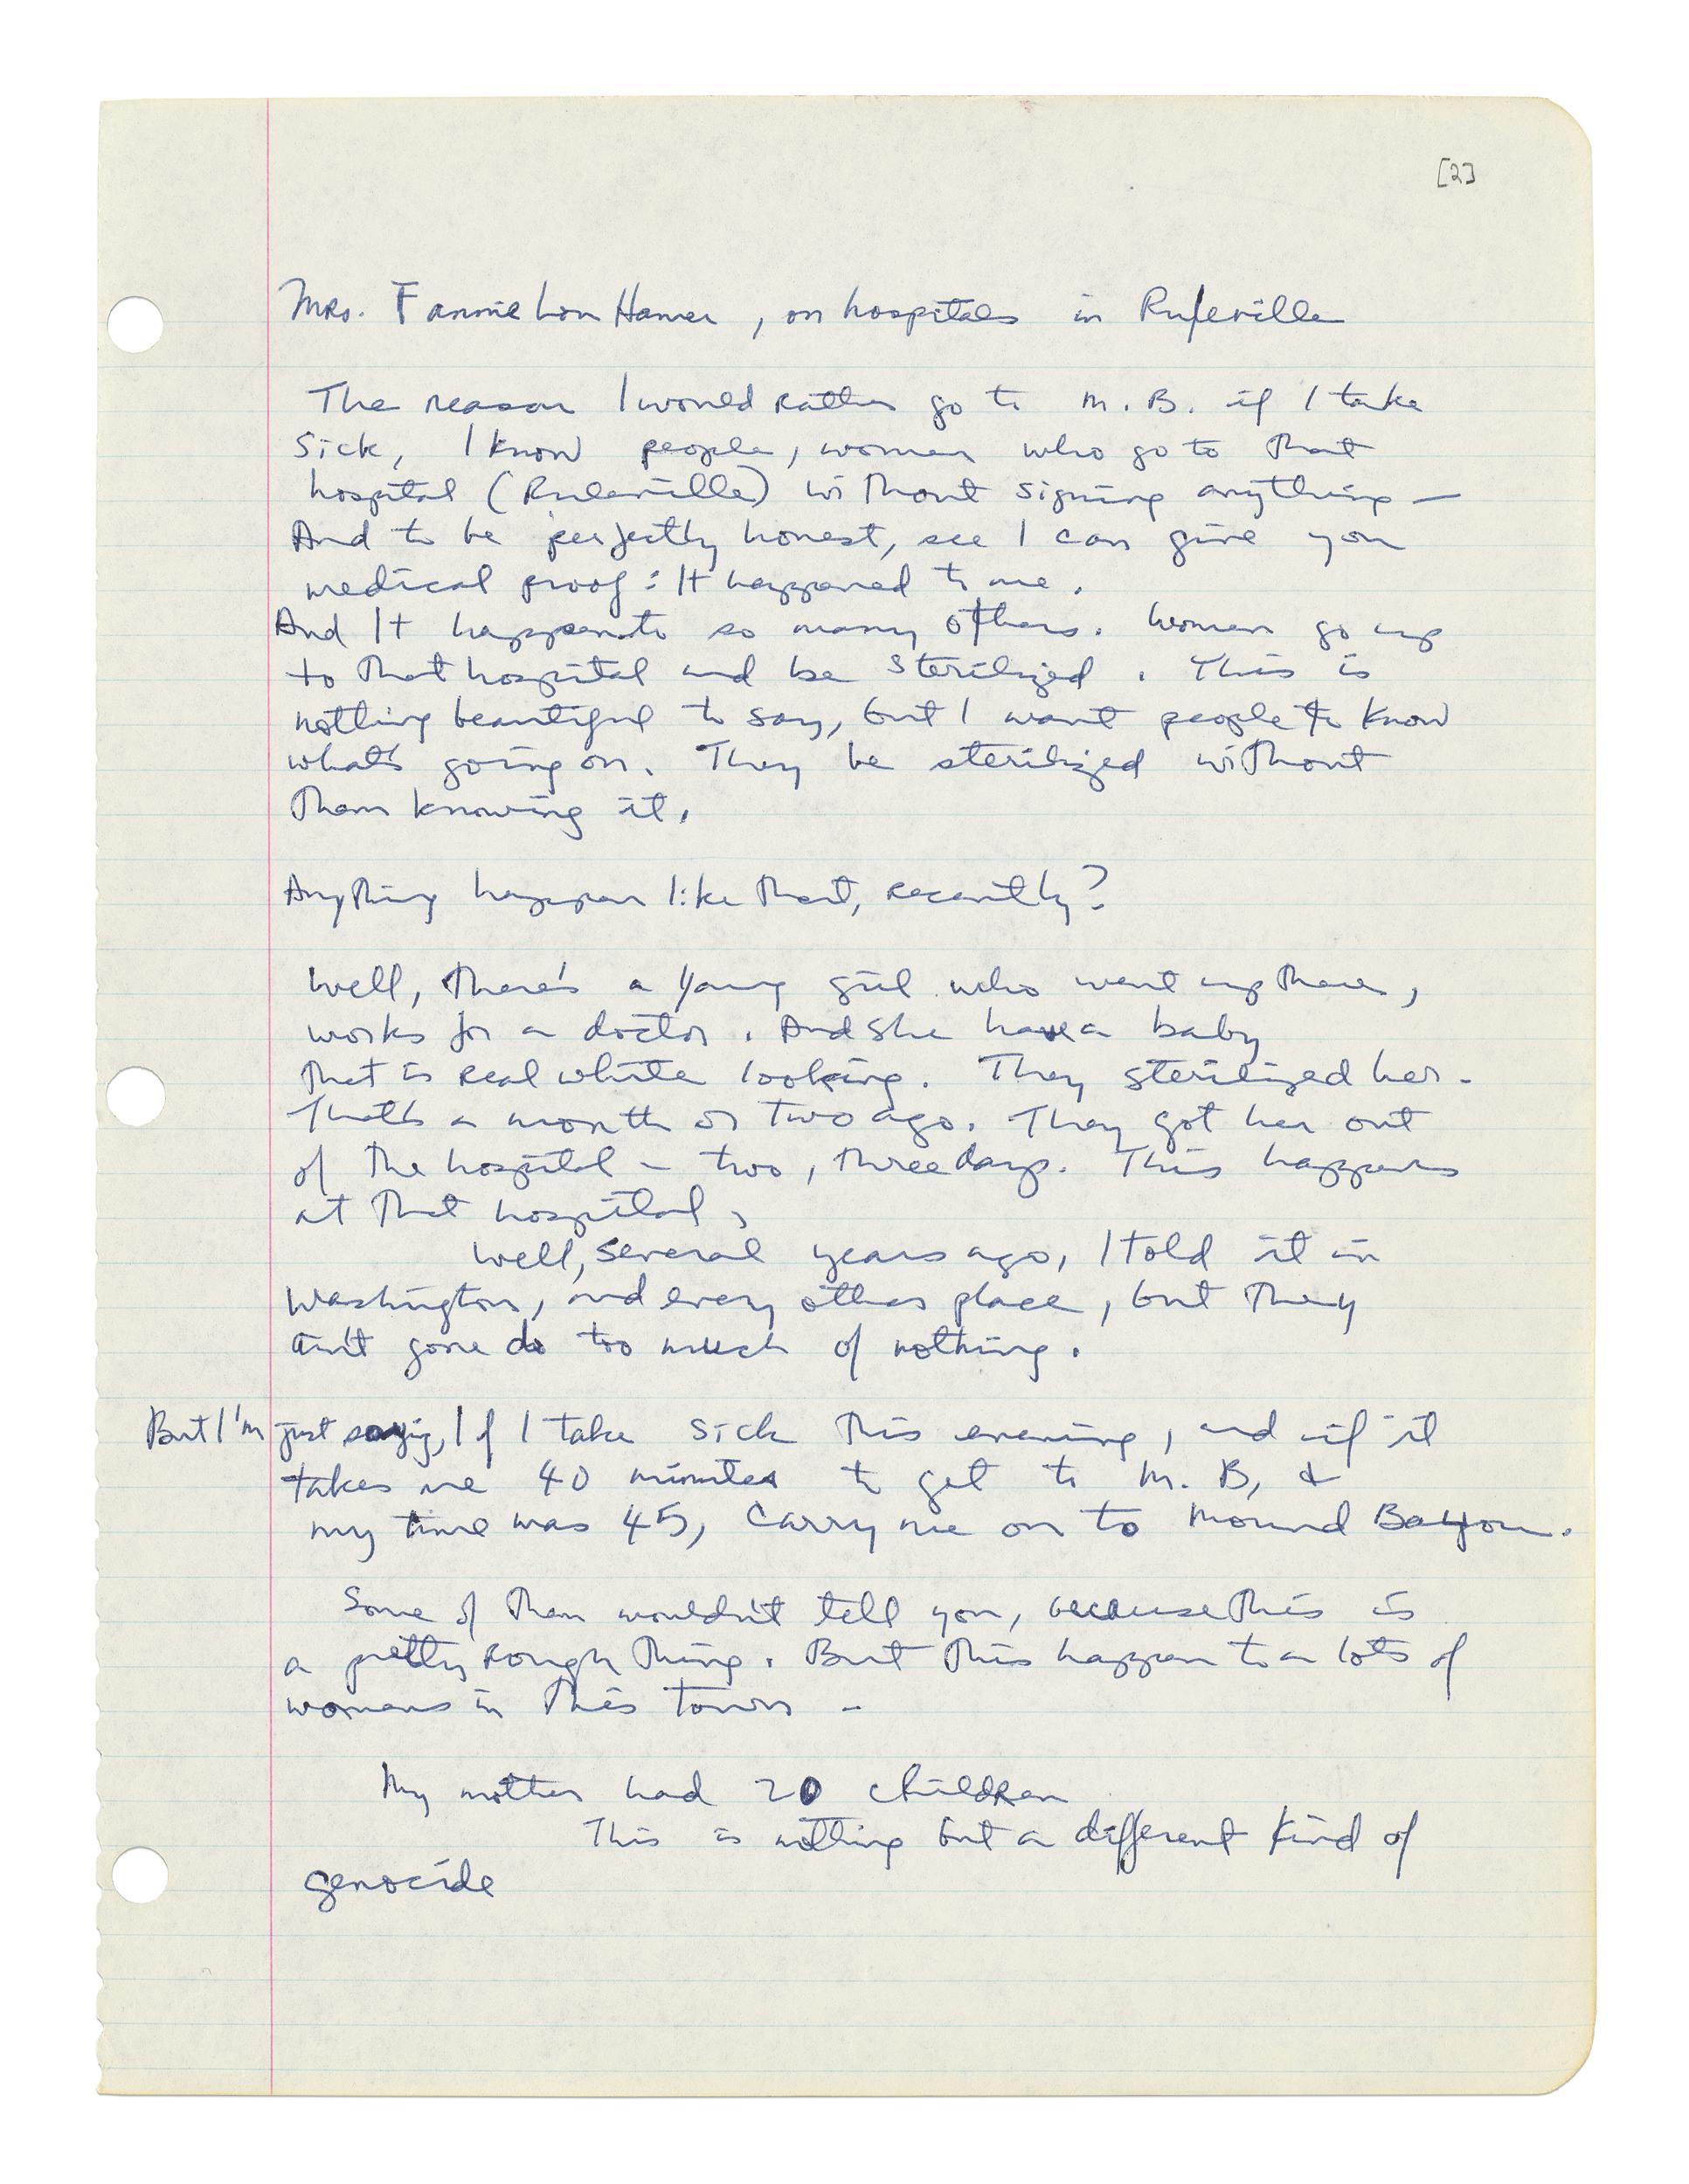 [2]
Mrs. Fannie Lou Hamer, on hospitals in Ruleville
The reason I would rather go to M. B. if I take
sick, I know people, women who go to that
hospital (Ruleville) without signing anything —
And to be perfectly honest, see I can give you
medical proof: It happened to me.
And It happen to so many others. Women go up
to that hospital and be sterilized. This is
nothing beautiful to say, but I want people to know
what's going on. They be sterilized without
them knowing it.
Anything happen like that, recently?
Well, there's a young girl who went up there,
works for a doctor. And she have a baby
that is real white looking. They sterilized her -
That's a month or two ago. They got her out
of the hospital - two, three days. This happens
at that hospital,
Well, several years ago, I told it in
Washington, and every other place, but they
ain't gone do too much of nothing.
But I'm just saying, If I take sick this evening, and if it
takes me 40 minutes to get to M. B, &
my time was 45, carry me on to Mound Bayou.
Some of them wouldn't tell you, because this is
a pretty rough thing. But this happen to a lots of
womens in this town -
My mother had 20 children
This is nothing but a different kind of
genocide